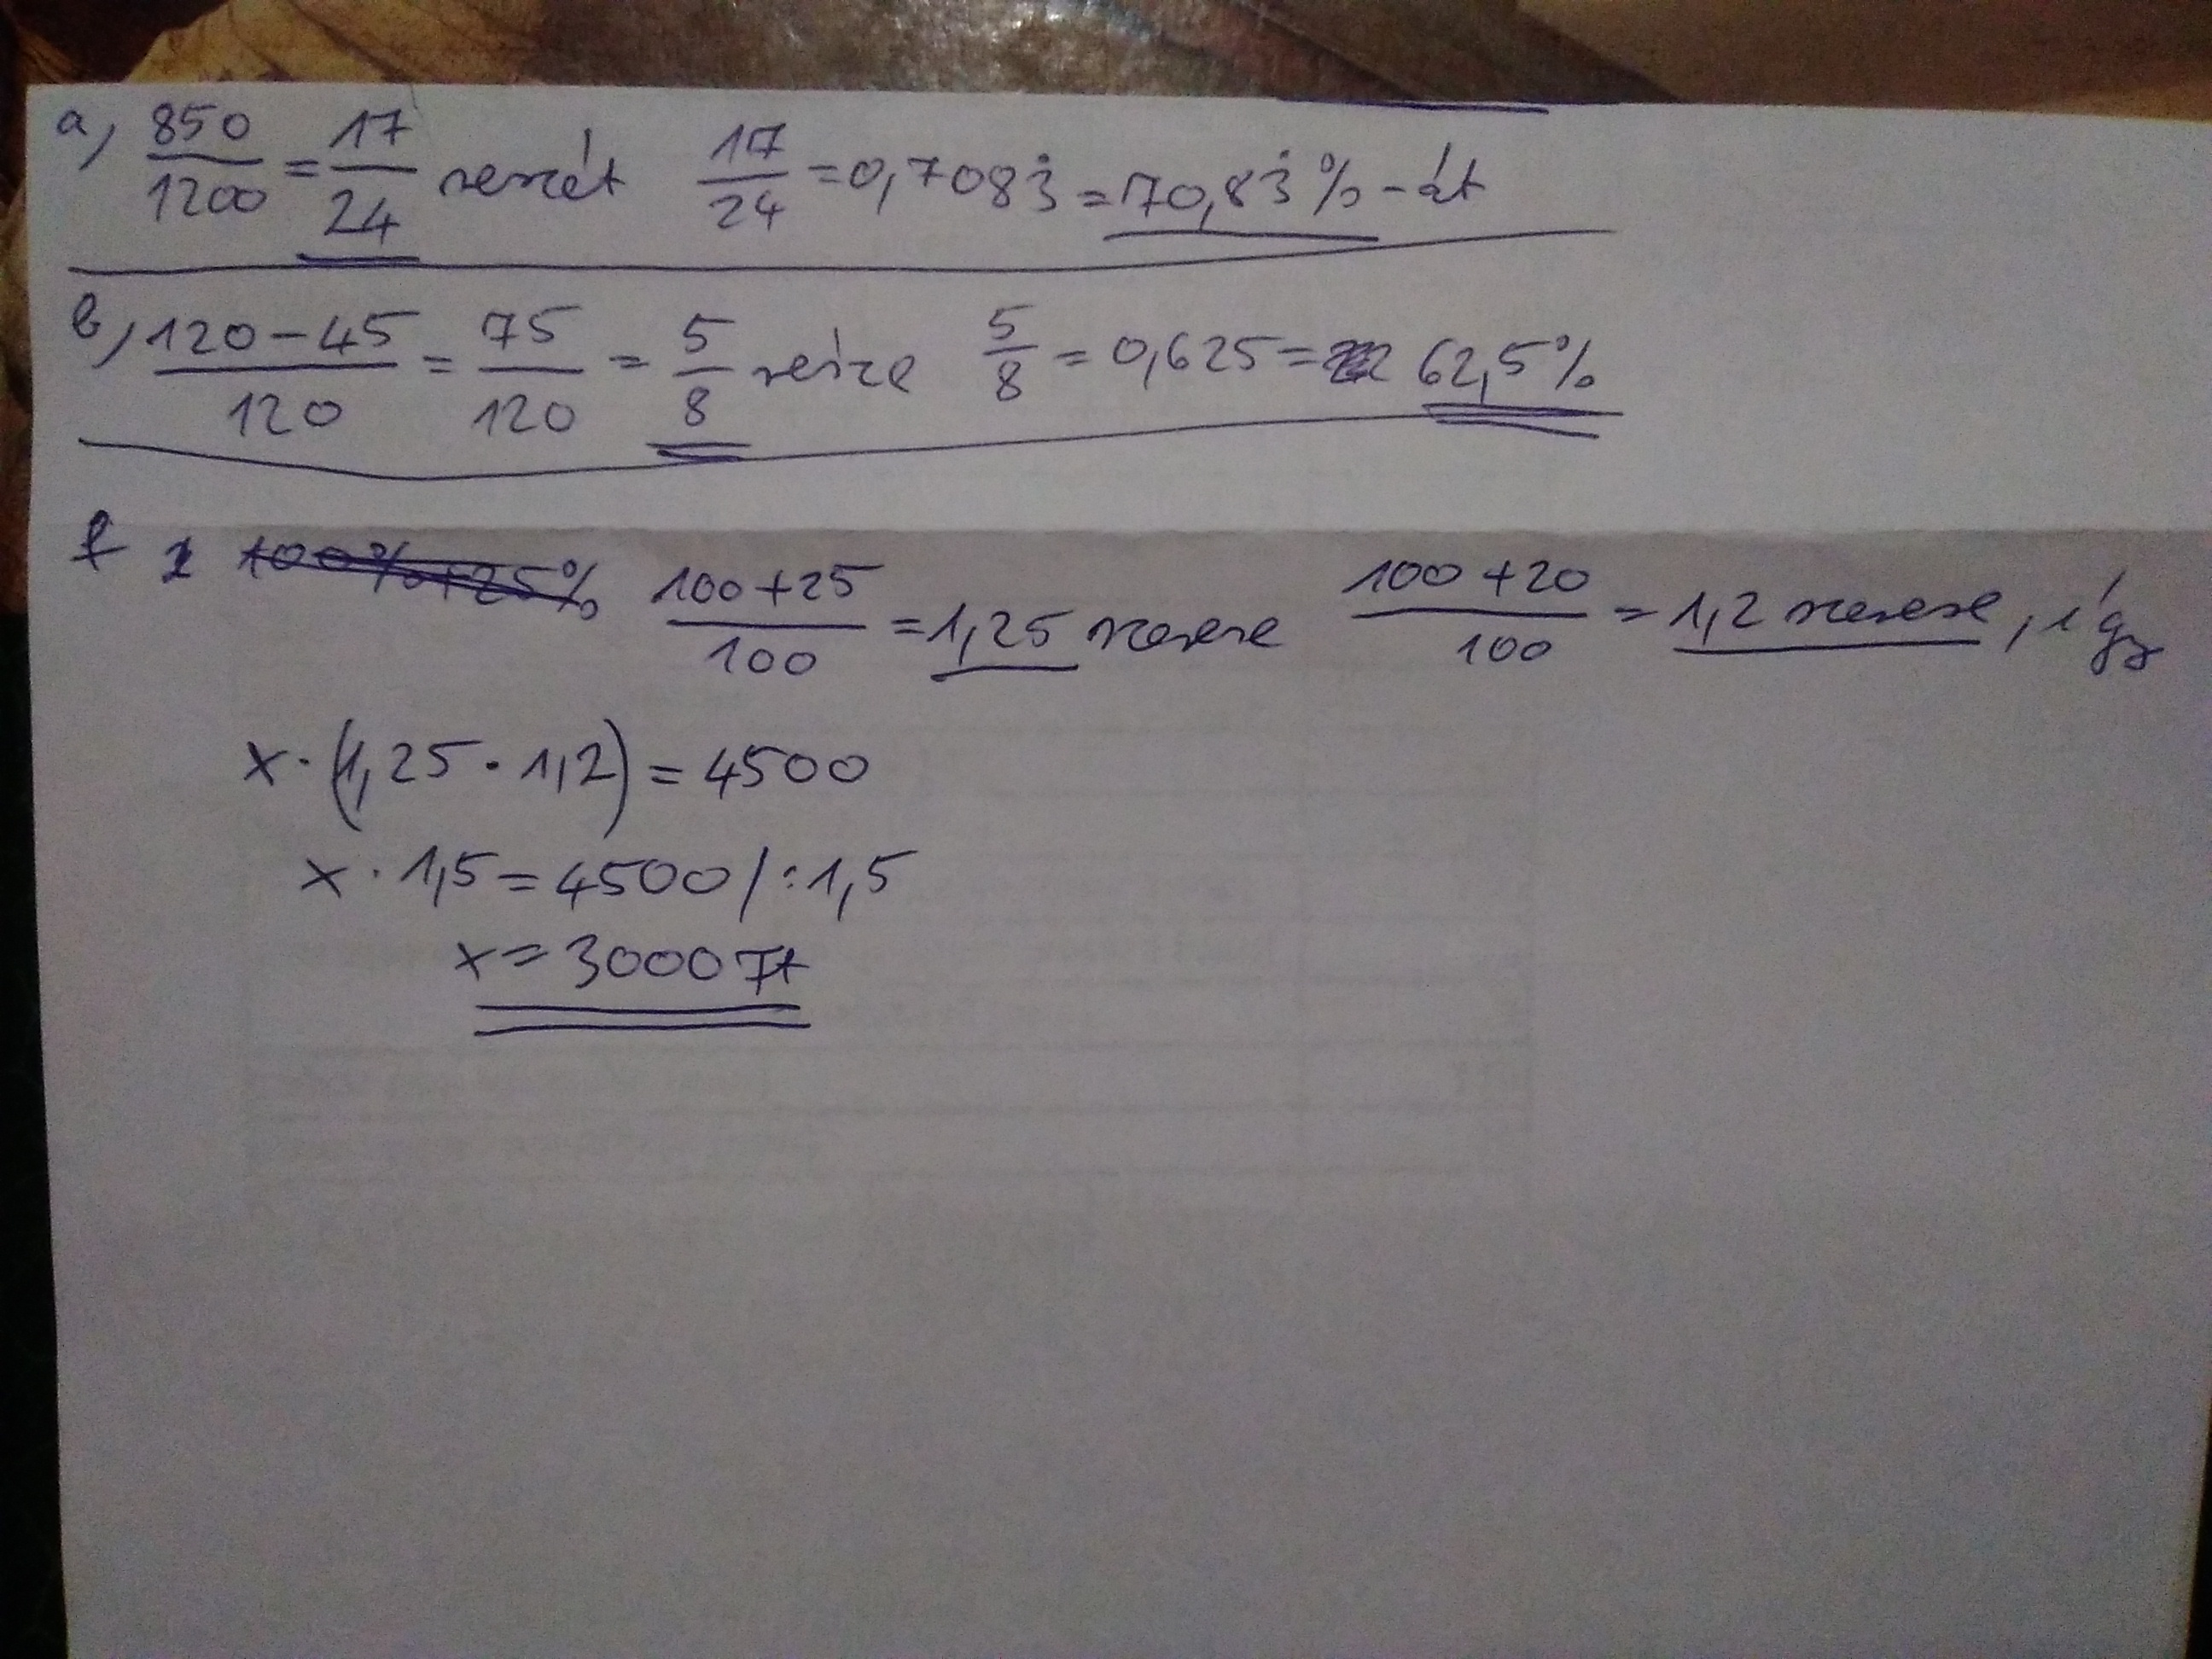 a, 850/1200 = 17/24 részét 17/24 = 0,7083̇ = 70,83̇ %-át
b, 120-45/120 = 75/120 = 5/8 része 5/8 = 0,625 = 62,5%
f 100%+25% 100+25/100 = 1,25 szerese 100+20/100 = 1,2 szerese, így
x·(1,25·1,2) = 4500
x·1,5 = 4500 /:1,5
x = 3000 Ft